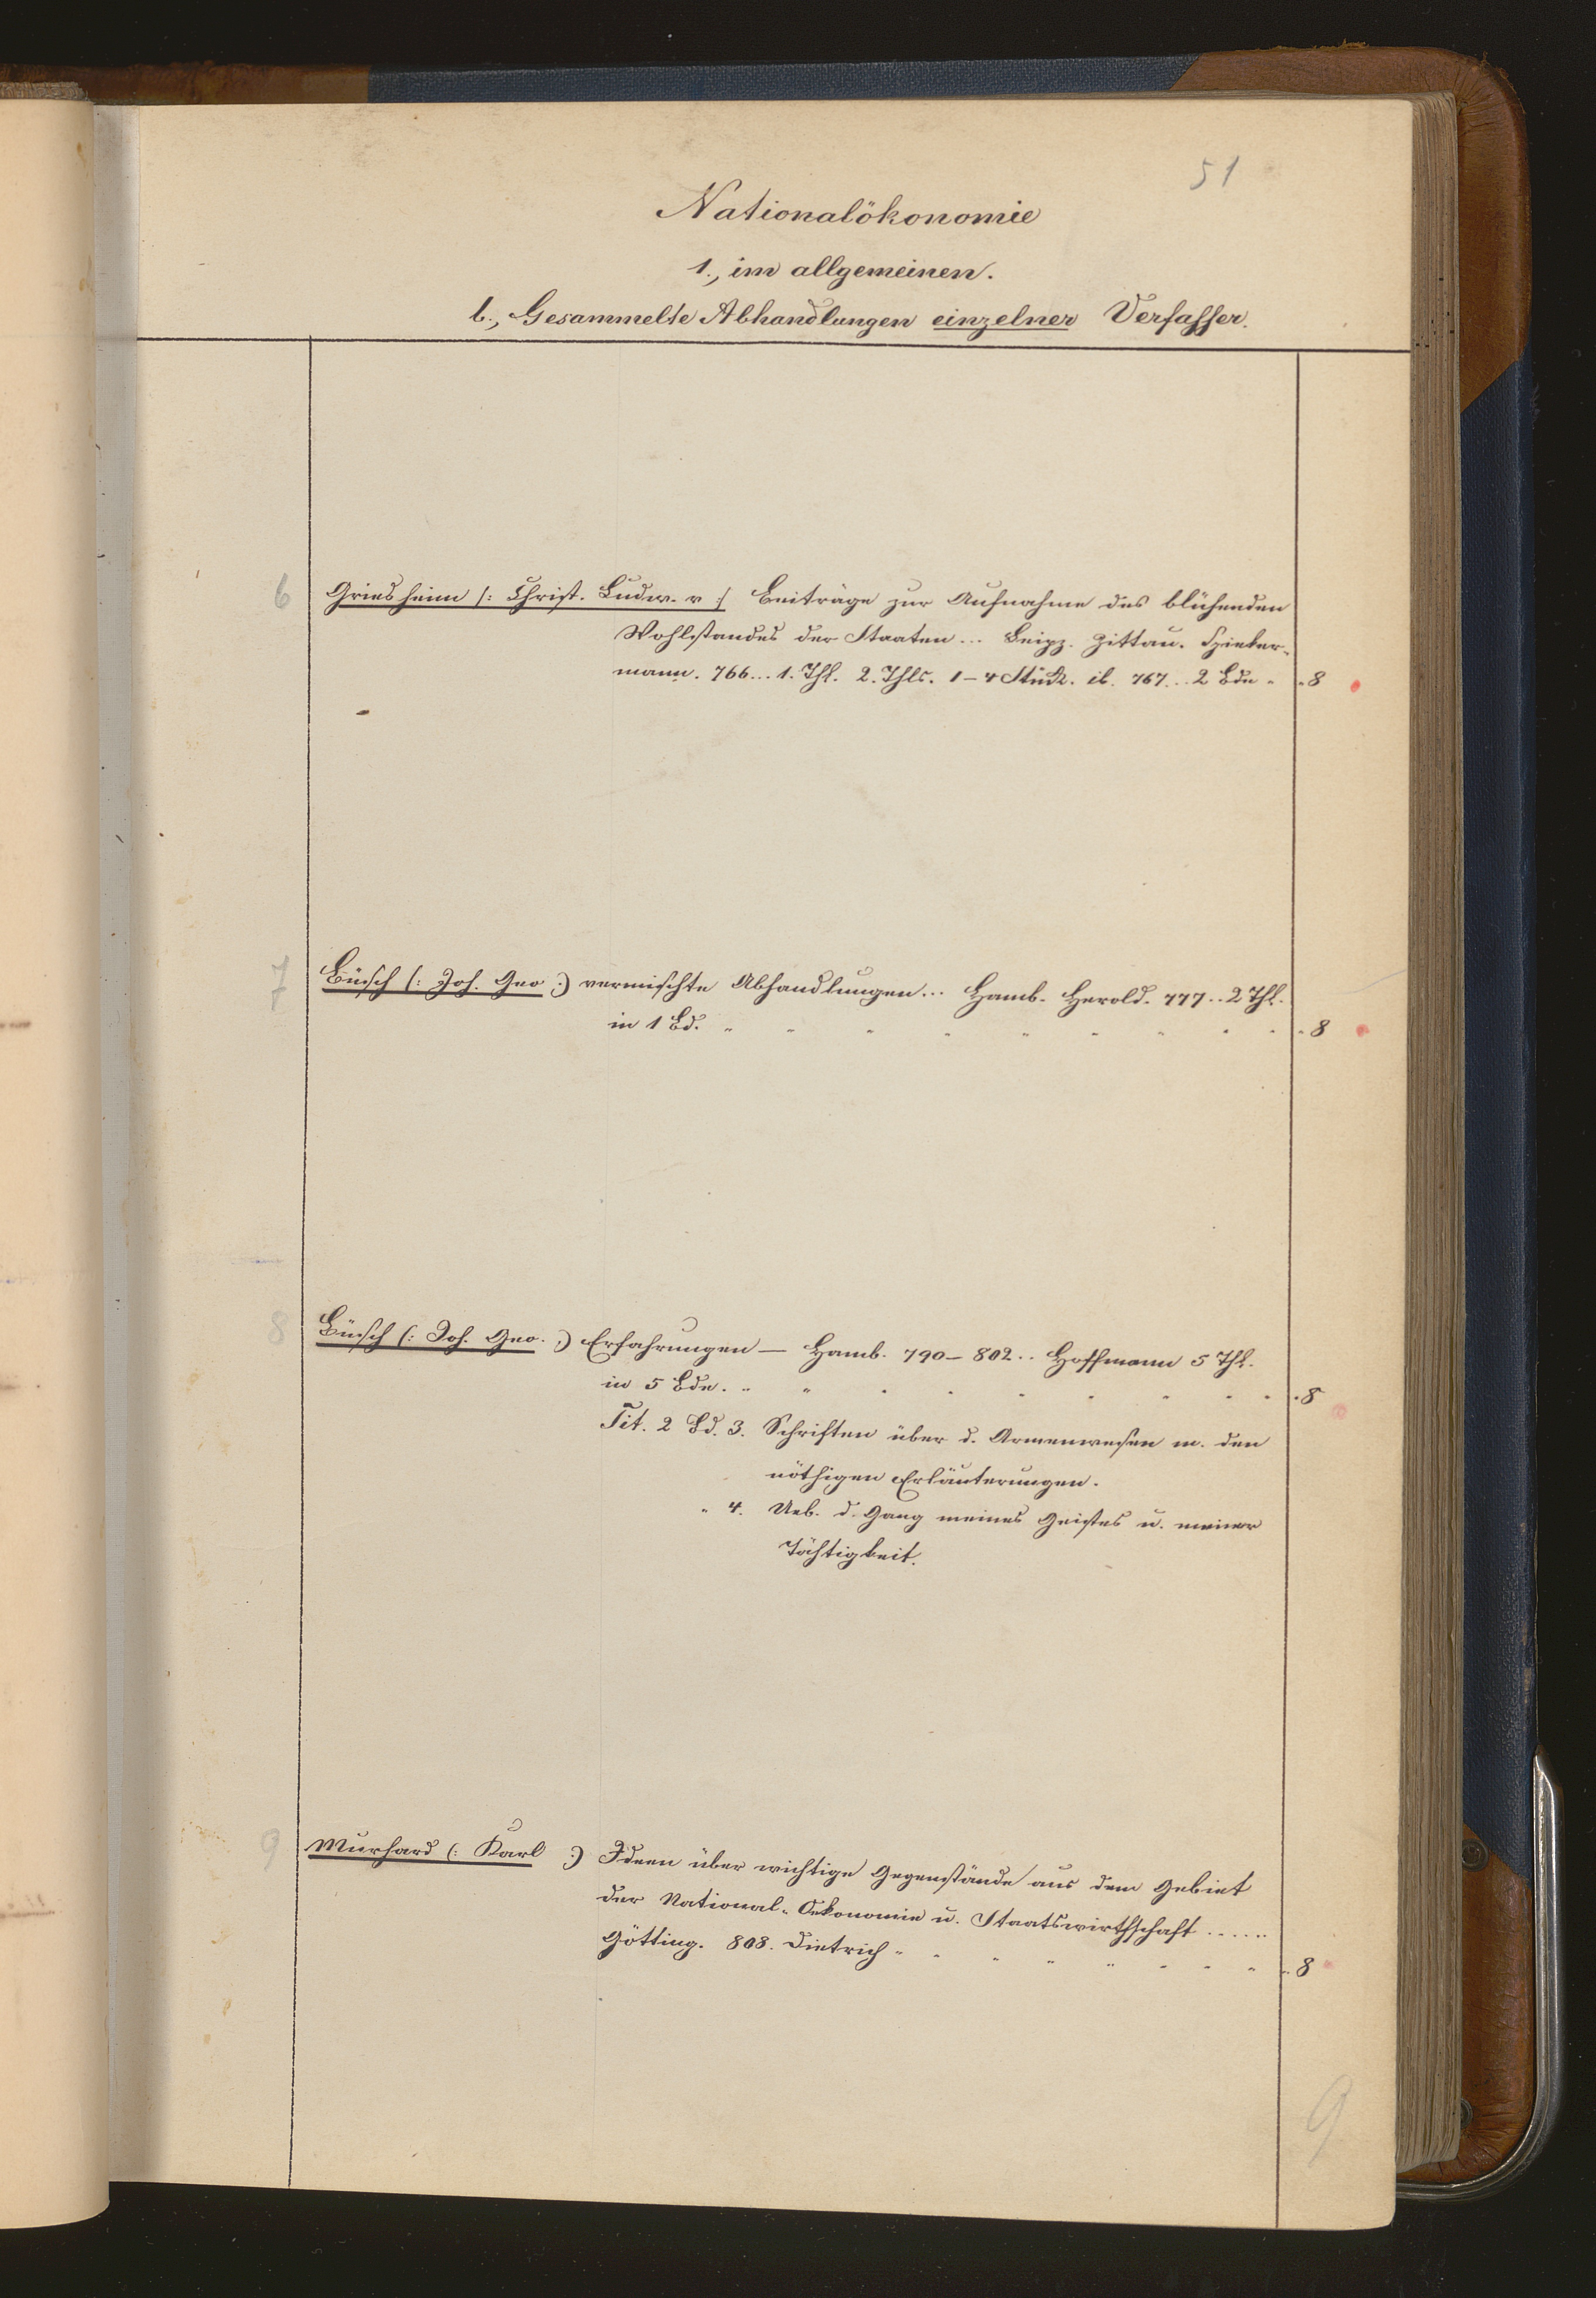 51
Nationalökonomie
1., im allgemeinen.
b., Gesammelte Abhandlungen einzelner Verfasser.
6 Griesheim (: Christ. Ludw. v :) Beiträge zur Aufnahme des blühenden
Wohlstandes der Staaten... Leipz. Zittau. Spieker-
mann. 766... 1. Thl. 2. Thls. 1-4 Stück. ib. 767... 2 Bde " " 8
7 Büsch (: Joh. Geo :) vermischte Abhandlungen... Hamb. Herold. 777.. 2 Thl.
in 1 Bd. " " " " " " " " " " 8
8 Büsch (: Joh. Geo. :) Erfahrungen — Hamb. 790-802.. Hoffmann 5 Thl.
in 5 Bde. " " " " " " " " " " 8
Tit. 2 Bd. 3. Schriften über d. Armenwesen m. den
nöthigen Erläuterungen.
" 4. Ueb. d. Gang meines Geistes u. meiner
Tähtigkeit.
9 Murhard (: Karl :) Ideen über wichtige Gegenstände aus dem Gebiet
der National-Oekonomie u. Staatswirthschaft ......
Götting. 808. Dietrich " " " " " " " " " 8
9